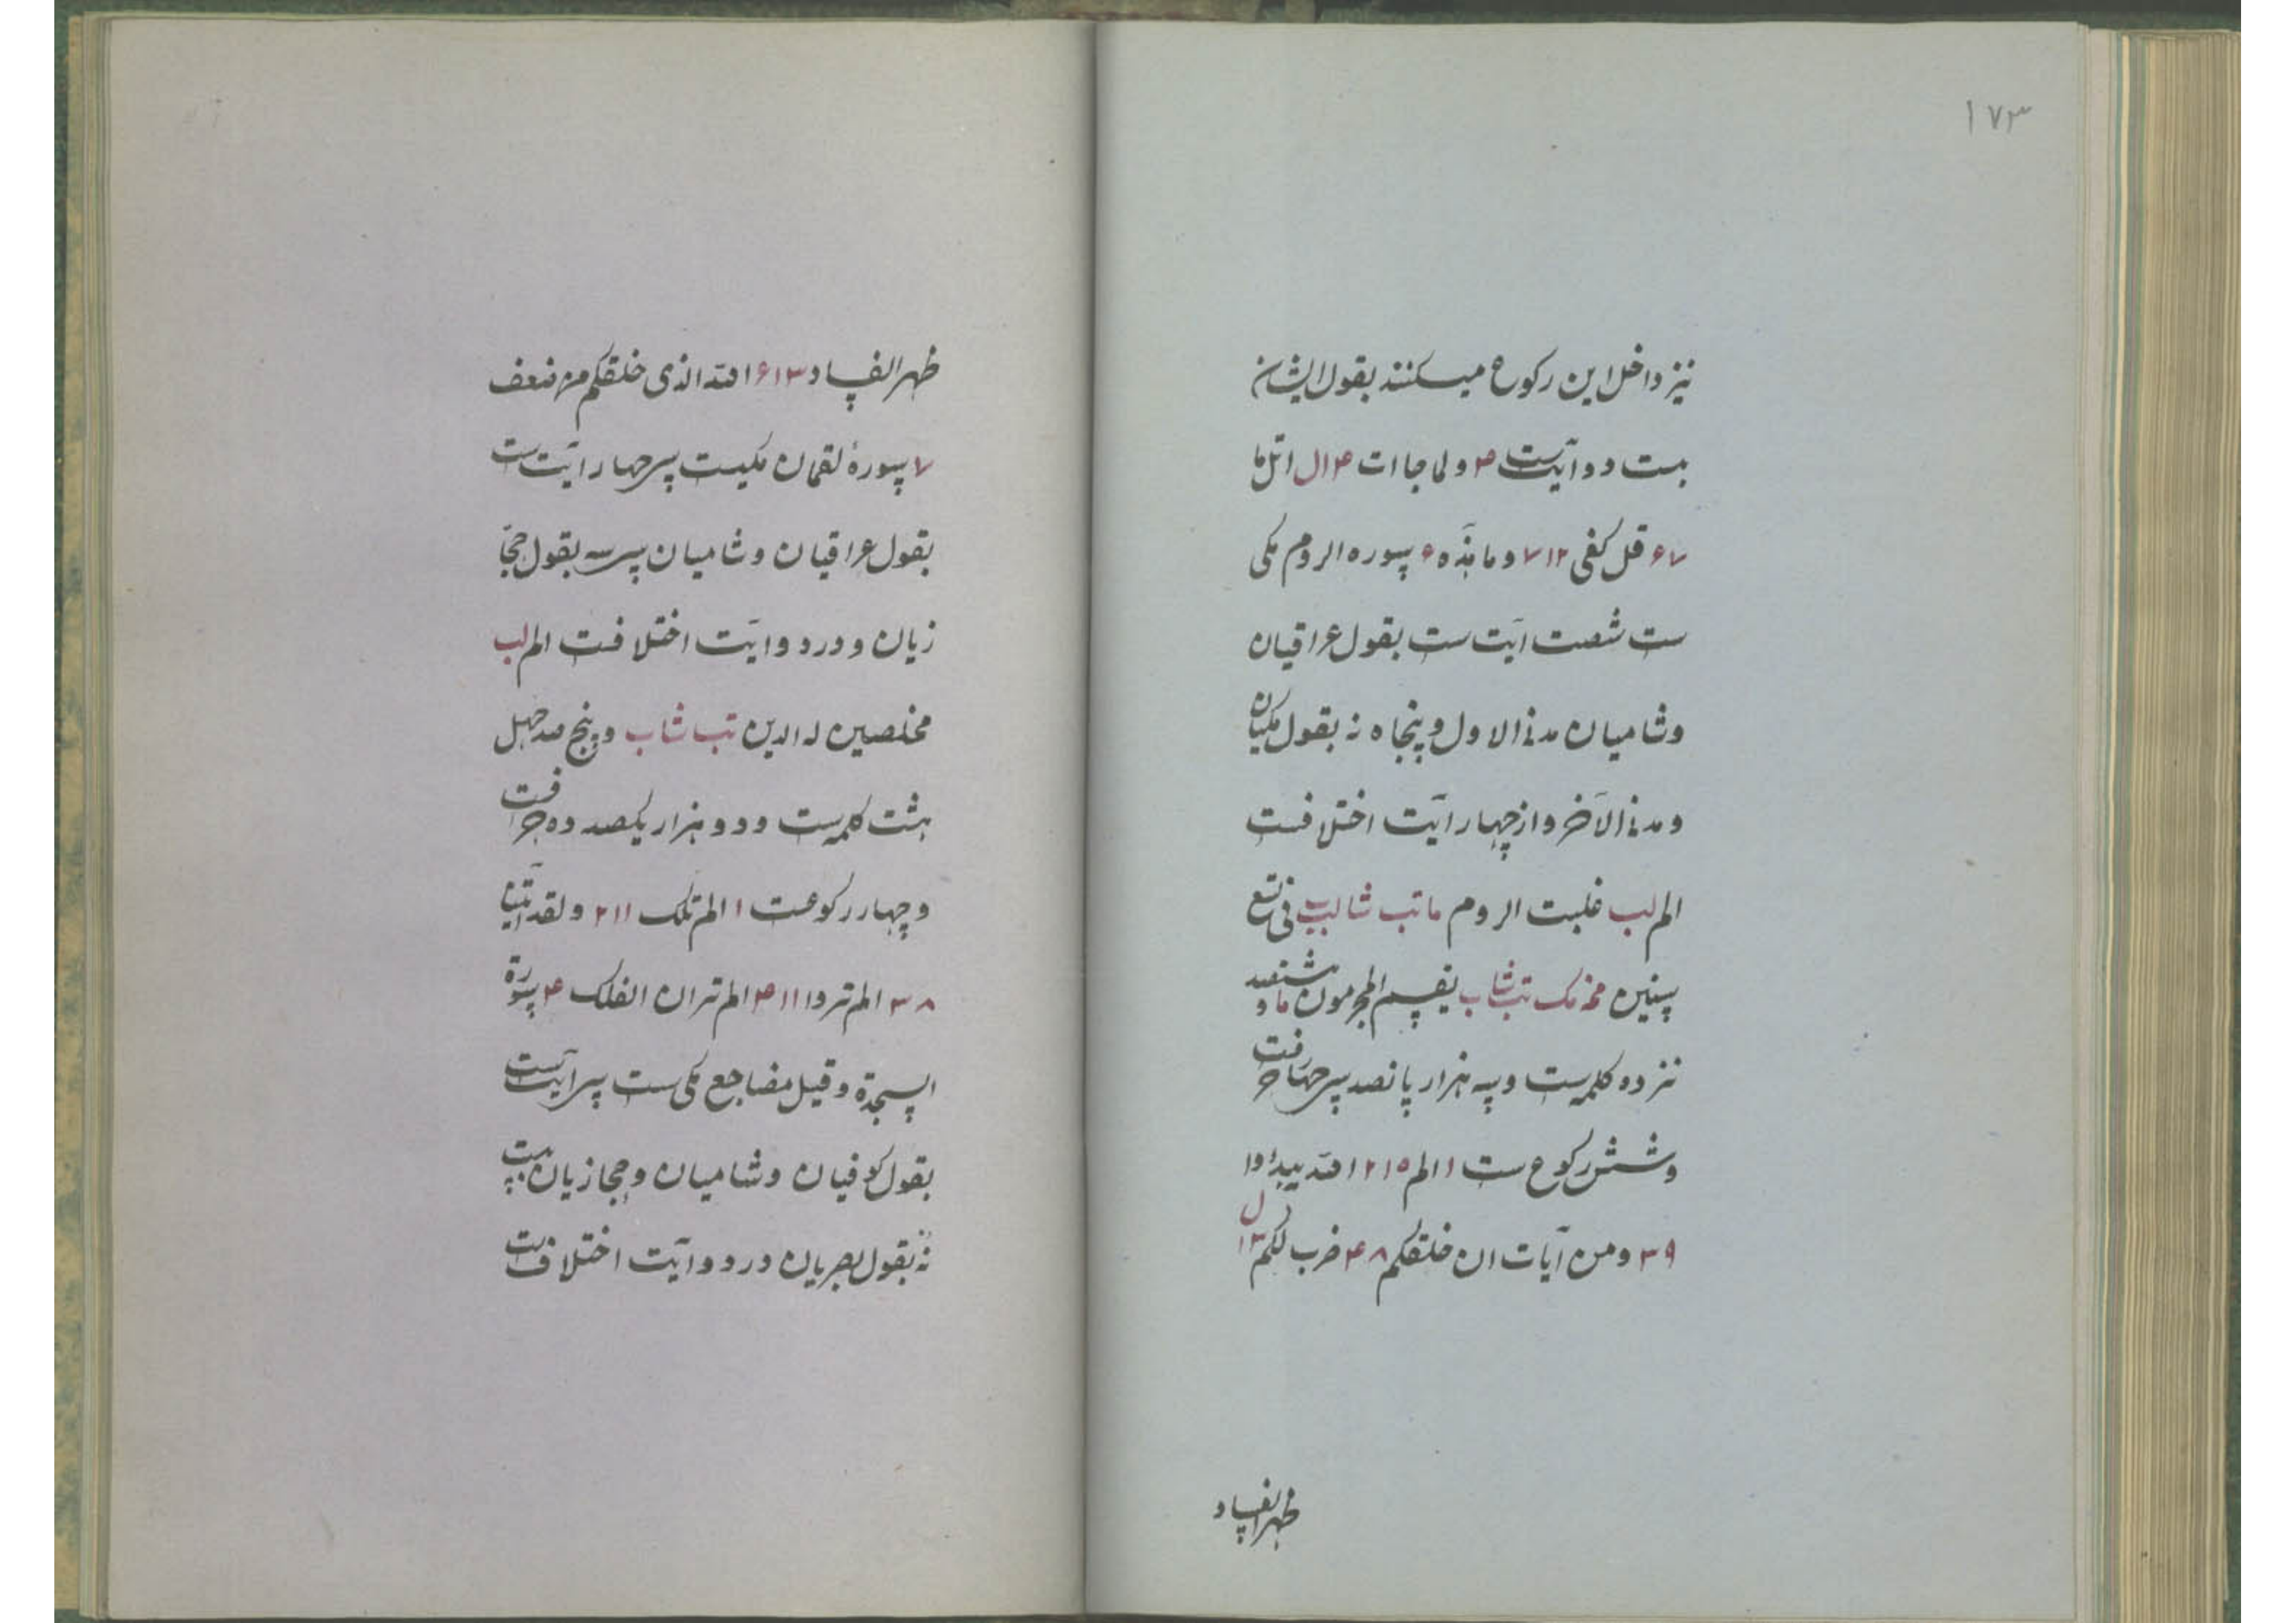 ۱۷۳
نیز داخل این رکوع میکنند بقول ایشان
بست و دو آیتست ۳ و لما جاات ۴ ال اتل ما
۶۷ قل کفی ۷۱۲ و ما هذه ۶ سوره الروم مکی
ست شصت ایت ست بقول عراقیان
و شامیان مدنی الاول و پنجاه نه بقول مکیان
و مدنی الاخر و از چهار آیت اختلافست
الم لب غلبت الروم ما تب شا لب فی بضع
سنین تب شاب یقسم المجرمون ما و هشتصد
نزده کلمه ست و سه هزار پانصد سی چهار حرفت
و شش رکوع ست ۱ الم ۲۱۵ الله یبدؤا
۳۹ و من آیات ان خلقکم ۴۸ ضرب لکم ۱۳ ل
ظهر الفساد
ظهر الفساد ۶۱۳ الله الذی خلقکم من ضعف
۷ سورهٔ لقمان مکیست سی چهار ایت ست
بقول عراقیان و شامیان سی سه بقول حجا
زیان و در دو ایت اختلافست الم لب
مخلصین له الدین تب شاب و پنج صد چهل
هشت کلمه ست و دو هزار یکصد ده حرفست
و چهار رکوعست ۱ الم تلک ۲۱۱ و لقد آتینا
۳۸ الم تروا ۴۱۱ الم تر ان الفلک ۴ سورة
السجدة و قیل مضاجع مکی ست سی ایتست
بقول کوفیان و شامیان و حجازیان بیست
نه بقول بصریان در دو آیت اختلافست